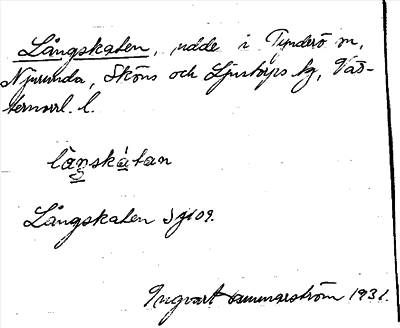 Långskaten, udde i Tynderö sn,
Njurunda, Sköns och Ljustorps tg, Väs-
ternorrl. l.
långskàtan
Långskaten Sjö 09.
Ingvart Hammarström 1931.